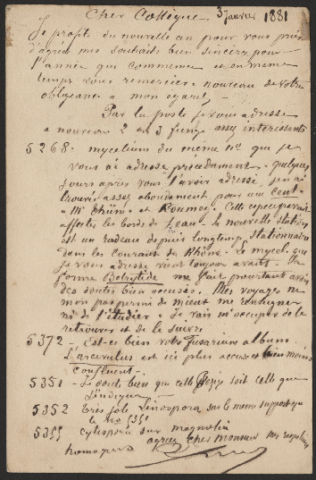 Cher Collègue 3 janvier 1881
Je profite du nouvelle an pour vous prier
d'agréer mes souhaits bien sincères pour
l'année qui commence et en même
temps vous remercier à nouveau de votre
obligeance à mon égard.
Par la poste je vous adresse
à nouveau 2 ou 3 fungi assez intéressants
5268: mycelium du même nº que je
vous ai adressé précédemment. Quelques
jours après vous l'avoir adressé j'en ai
trouvé assez abondamment pour un cent.
et Roumeg. Cette espèce paraît
les bords de l'eau. La nouvelle station
est un radeau depuis longtemps stationnaire
dans les courants du Rhône. Le mycel. que
je vous adresse vient toujours avant. Une
forme me fait pourtant avoir
des doutes bien accusés. Mes voyages ne
mon pas permis de mieux me renseigner
ni de l'étudier. Je vais m'occuper de le
retrouver et de le suivre.
5372 Est-ce bien votre Fusarium album
L'arcuelus est ici plus accusé et bien moins
confluent.
5351 Je doute bien que cette soit celle que
j'indique
5352 Très joli sur le même support que
le Nº 5351
5355 cytispora sur magnolia
agréez cher monsieur mes